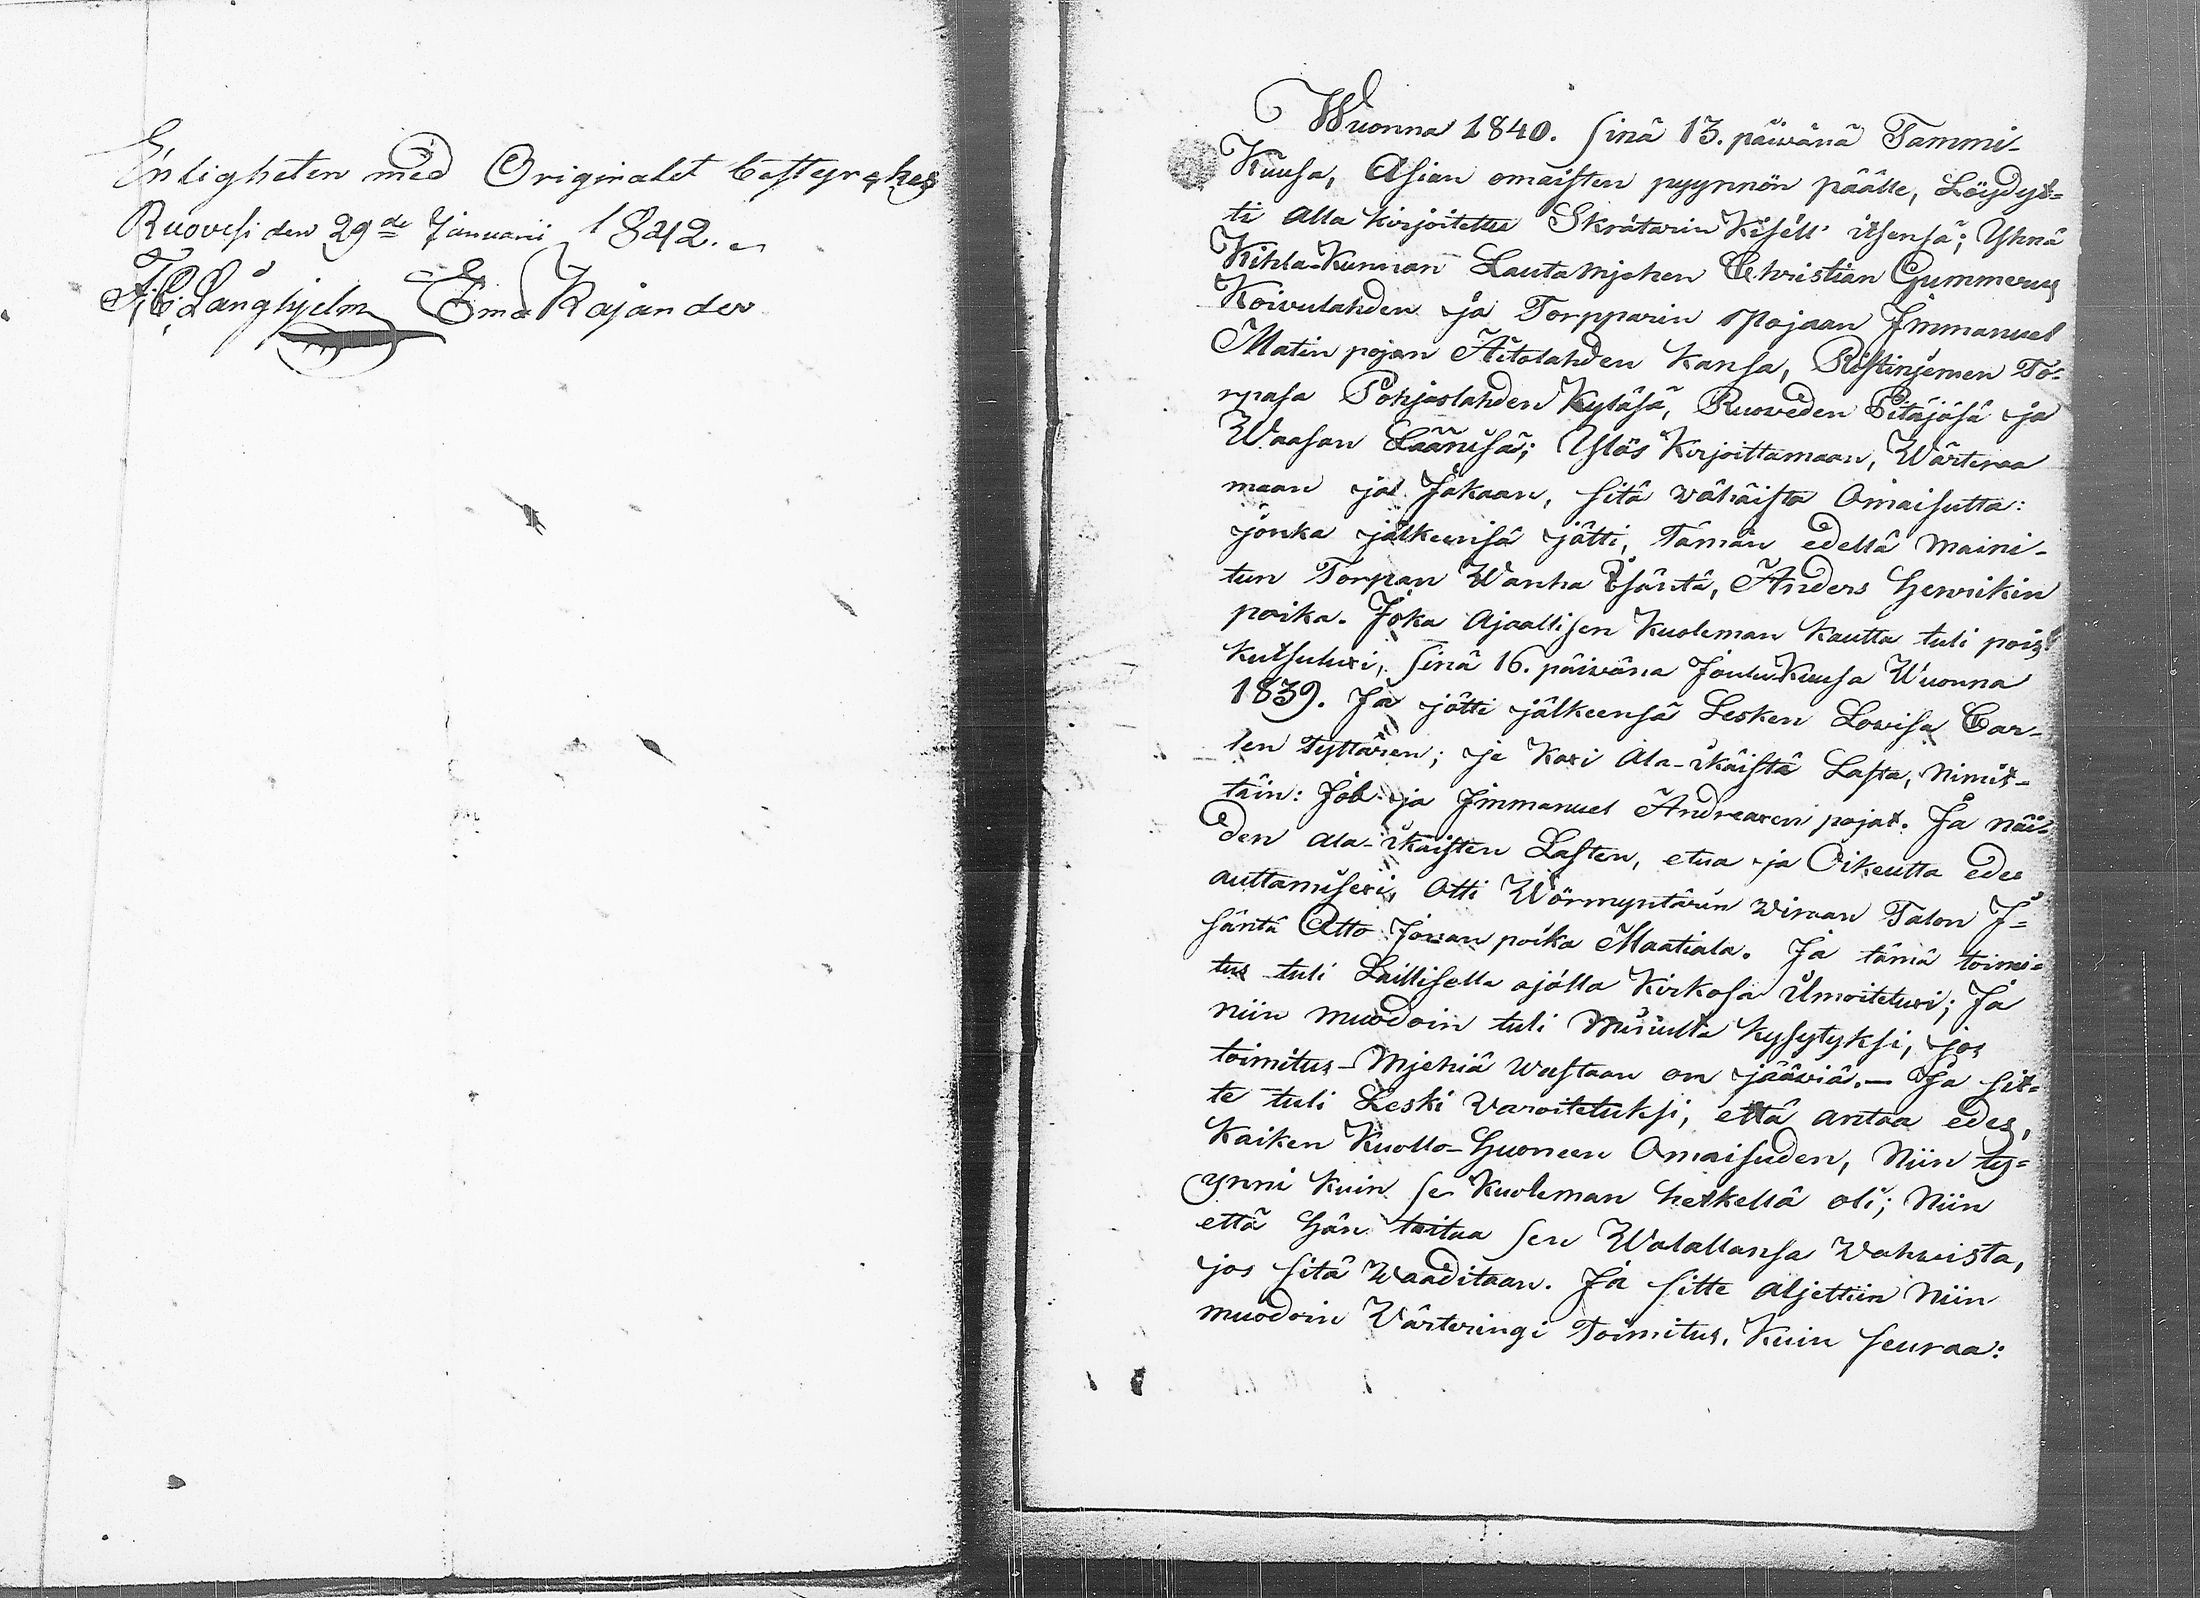 Enligheten med Originalet bestyrckes
Ruovesi den 29de Januarii 1842.
F: C: Långhjelm Em: Rajander
Wuonna 1840. sinä 13. päiwänä Tammi-
Kuusa, Asian omaisten pyynnön päälle, Löydyt-
ti alla kirjoitettu Skrätarin Kisell itsensä; Yhnä
Kihla-Kunnan Lautamjehen Christian Gummerus
Koivulahden ja Torpparin Pojaan Immanuel
Matin pojan Äitolahden kansa, Ristinjemen To-
rpasa Pohjaslahden Kyläsä, Ruoveden Pitäjäsä ja
Waasan Läänisä; Ylös Kirjoittamaan, Wärteraa
maan ja Jakaan, sitä wähäistä Omaisutta:
jonka jälkeensä jätti, Tämän edellä maini-
tun Torpan Wanha Isäntä, Anders Henrikin
poika. Joka Ajaallisen Kuoleman kautta tuli pois
kutsutuxi, sinä 16. päiwänä Joulu Kuusa Wuonna
1839. Ja jätti jälkeensä Lesken Lovisa Car-
len Tyttären; ja Kaxi Ala-ikäistä Lasta, Nimit-
täin: Job ja Immanuel Andreaxen pojat. Ja näi-
den ala-ikäisten Lasten, etua ja Oikeutta edes
auttamisexi, Otti Wörmyntärin wiraan Talon I-
säntä Otto Johan poika Maatiala. Ja tämä toimi-
tus tuli Laillisella ajalla Kirkosa ilmoitetuxi; Ja
niin muodoin tuli Muiulta kysytyksi, jos
toimitus-Mjehiä wastaan on jääwiä.- Ja sit-
te tuli Leski Varoitetuksi, että antaa edes,
Kaiken Kuollo-Huoneen Omaisuden, Niin ty-
ynni kuin se Kuoleman hetkellä oli; Niin
että Hän taitaa sen Walallansa Wahwista,
jos sitä Waaditaan. Ja sitte aljettiin Niin
muodoin Wärteringi Toimitus, Kuin seuraa: